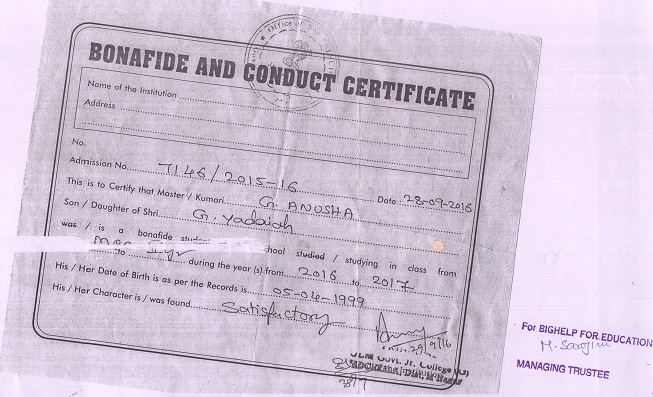 Office of
BONAFIDE AND CONDUCT CERTIFICATE
Name of the Institution
Address
No.
Admission No. 7146/2015-16
This is to Certify that Master / Kumari G. ANUSHA Date: 28-09-2016
Son / Daughter of Shri. G. Yadaiah
was / is a bonafide school studied / studying in class from
MPC to during the year (s) from 2016 to 2017
His / Her Date of Birth is as per the Records is 05-04-1999
His / Her Character is / was found Satisfactory
Govt. Jr. College
For BIGHELP FOR EDUCATION
M. Sarojini
MANAGING TRUSTEE